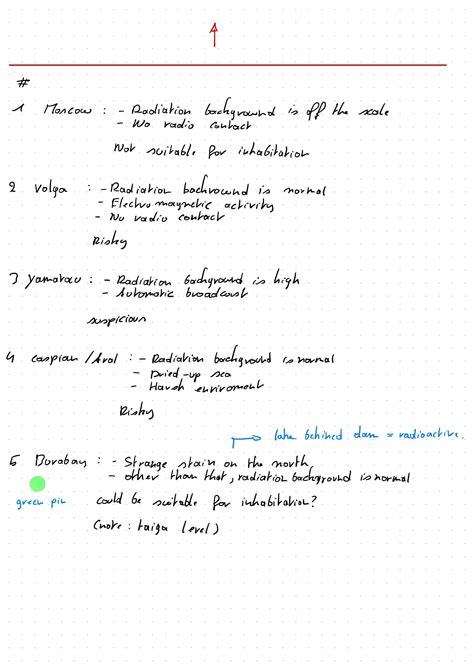 #
1 Moscow : - Radiation background is off the scale
- No radio contact
Not suitable for inhabitation
2 Volga : - Radiation background is normal
- Electromagnetic activity
- No radio contact
Risky
3 Yamatau : - Radiation background is high
- Automatic broadcast
suspicious
4 Caspian / Aral : - Radiation background is normal
- Dried-up sea
- Harsh enviroment
Risky
lake behined dam = radioactive.
5 : - Strange stain on the north
- other than that, radiation background is normal
green pin could be suitable for inhabitation?
(note : taiga level)